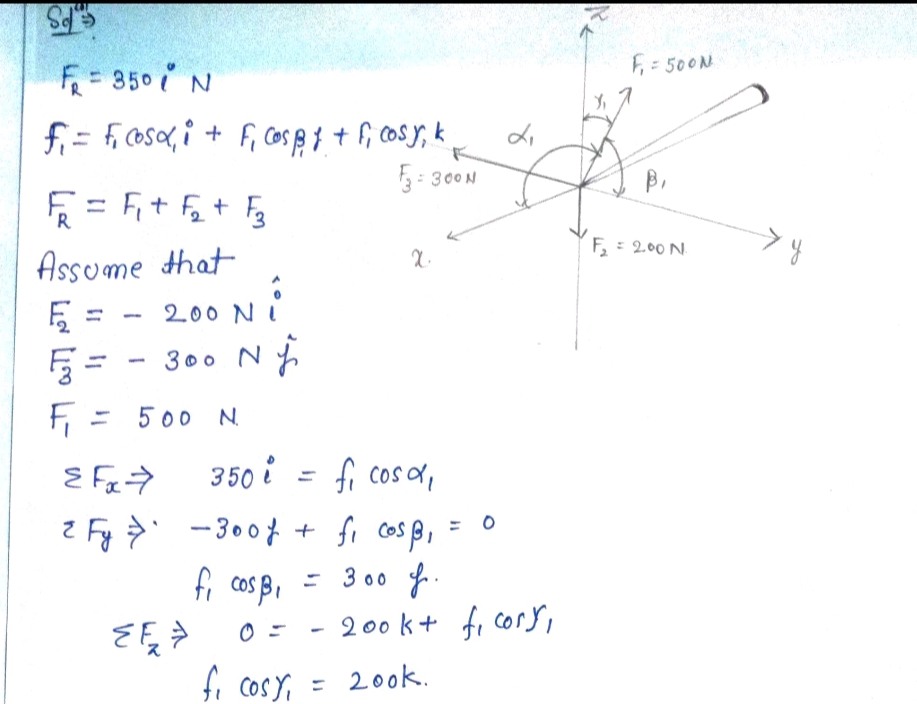 Solⁿ ⇒
F_R = 350 i N
f₁ = F₁ cosα₁ i + F₁ cosβ₁ j + f₁ cosγ₁ k
F_R = F₁ + F₂ + F₃
Assume that
F₂ = - 200 N î
F₃ = - 300 N ĵ
F₁ = 500 N.
Σ Fx ⇒ 350 i = f₁ cosα₁
Σ Fy ⇒ -300 j + f₁ cosβ₁ = 0
f₁ cosβ₁ = 300 j.
ΣFz ⇒ 0 = - 200 k + f₁ cosγ₁
f₁ cosγ₁ = 200k.
z
F₁ = 500N
γ₁
α₁
F₃ = 300N
β₁
x.
F₂ = 200 N.
y